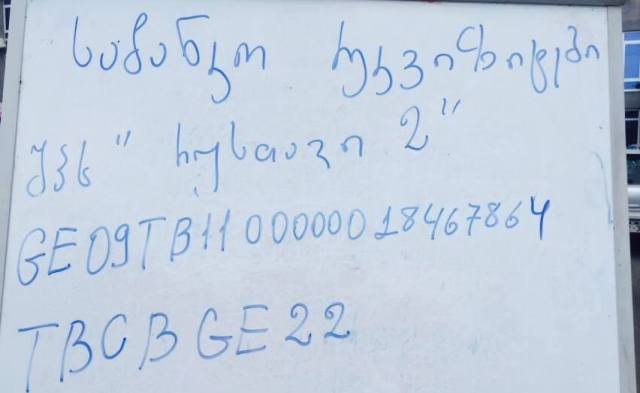 საბანკო რეკვიზიტები
შპს " რუსთავი 2"
GE09TB1100000018467864
TBCBGE22